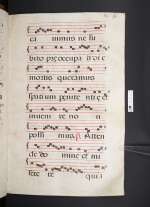 ca mimus ne su
bito preoccupati die
mortis queramus
spatium penite ntie &
inuenire no n
possimus. Atten
de do mine et mi
sere re qui